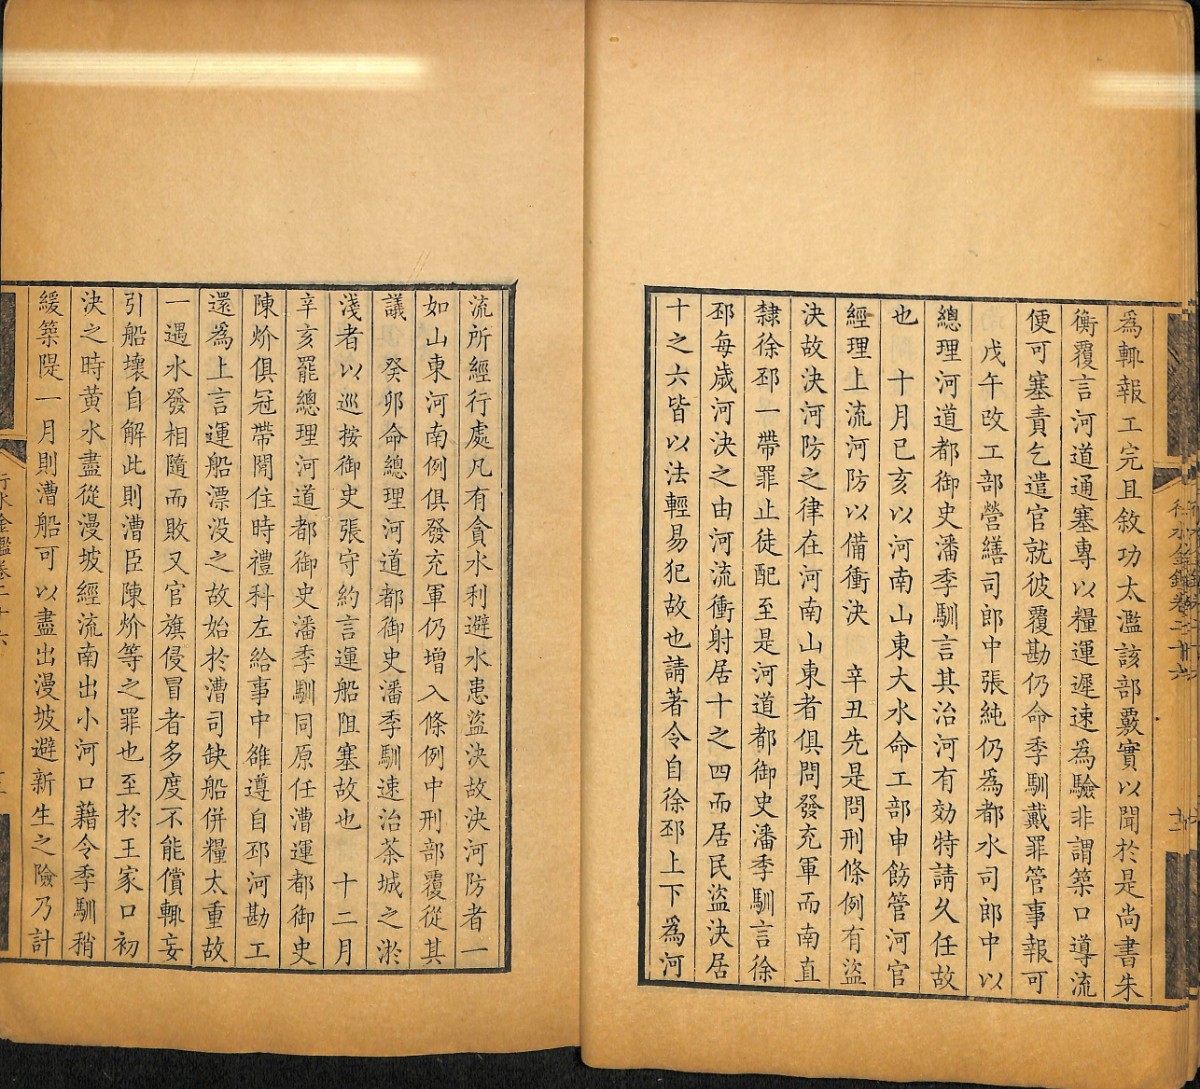 為輒報工完且敘功太濫該部覈實以聞於是尚書朱
衡覆言河道通塞專以糧運遲速為驗非謂築口導流
便可塞責乞遣官就彼覆勘仍命季馴戴罪管事報可
戊午改工部營繕司郎中張純仍為都水司郎中以
總理河道都御史潘季馴言其治河有効特請久任故
也　十月已亥以河南山東大水命工部申飭管河官
經理上流河防以備衝決　辛丑先是問刑條例有盜
決故決河防之律在河南山東者俱問發充軍而南直
隸徐邳一帶罪止徒配至是河道都御史潘季馴言徐
邳每歲河決之由河流衝射居十之四而居民盜決居
十之六皆以法輕易犯故也請著令自徐邳上下為河
行水金鑑卷二十六
流所經行處凡有貪水利避水患盜決故決河防者一
如山東河南例俱發充軍仍增入條例中刑部覆從其
議　癸卯命總理河道都御史潘季馴速治茶城之淤
淺者以巡按御史張守約言運船阻塞故也　十二月
辛亥罷總理河道都御史潘季馴同原任漕運都御史
陳炌俱冠帶閒住時禮科左給事中雒遵自邳河勘工
還為上言運船漂沒之故始於漕司缺船併糧太重故
一遇水發相隨而敗又官旗侵冒者多度不能償輒妄
引船壞自解此則漕臣陳炌等之罪也至於王家口初
決之時黃水盡從漫坡經流南出小河口藉令季馴稍
緩築隄一月則漕船可以盡出漫坡避新生之險乃計
行水金鑑卷二十六